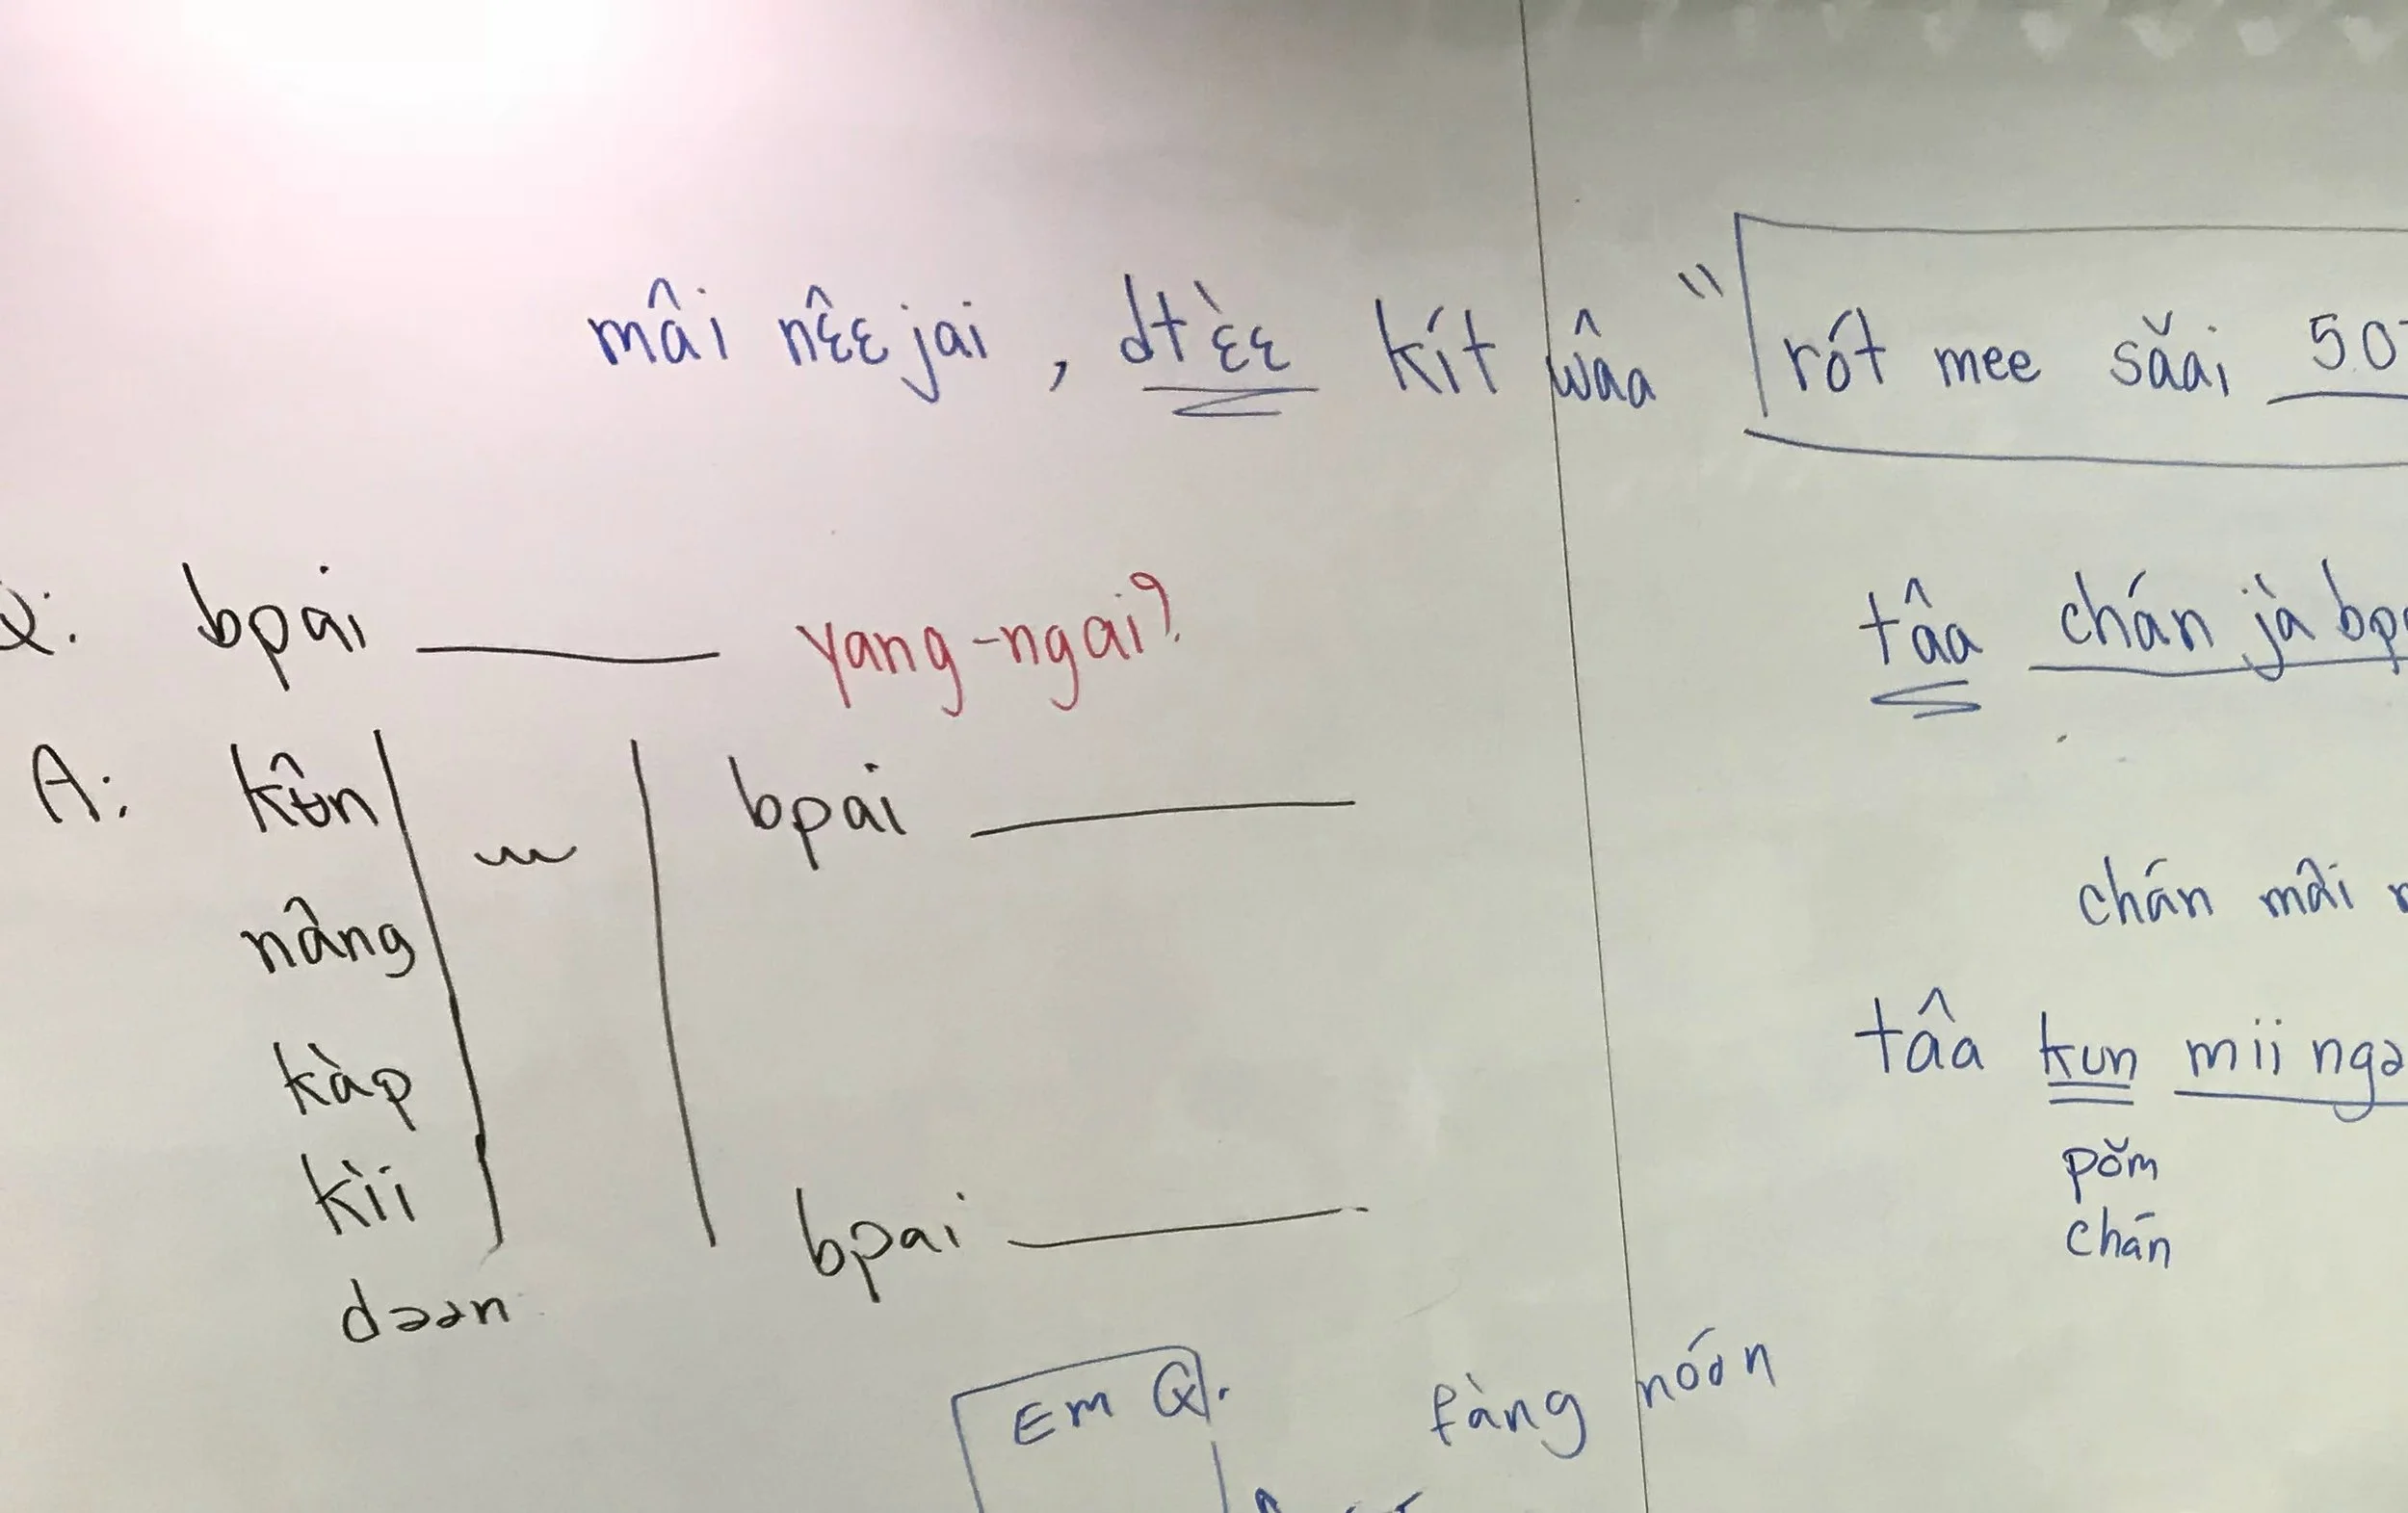 mâi nêɛjai, dtὲɛ kít wâa "rót mee sǎai 50
Q: bpai ______ yang-ngai?
A: kʉ̂n ~ bpai ______
nâng
kàp
kìi bpai ______
dəən
Em Q. fàng nóon
tâa chán jà bp
chán mâi
tâa kun mii ngə
pǒm
chán